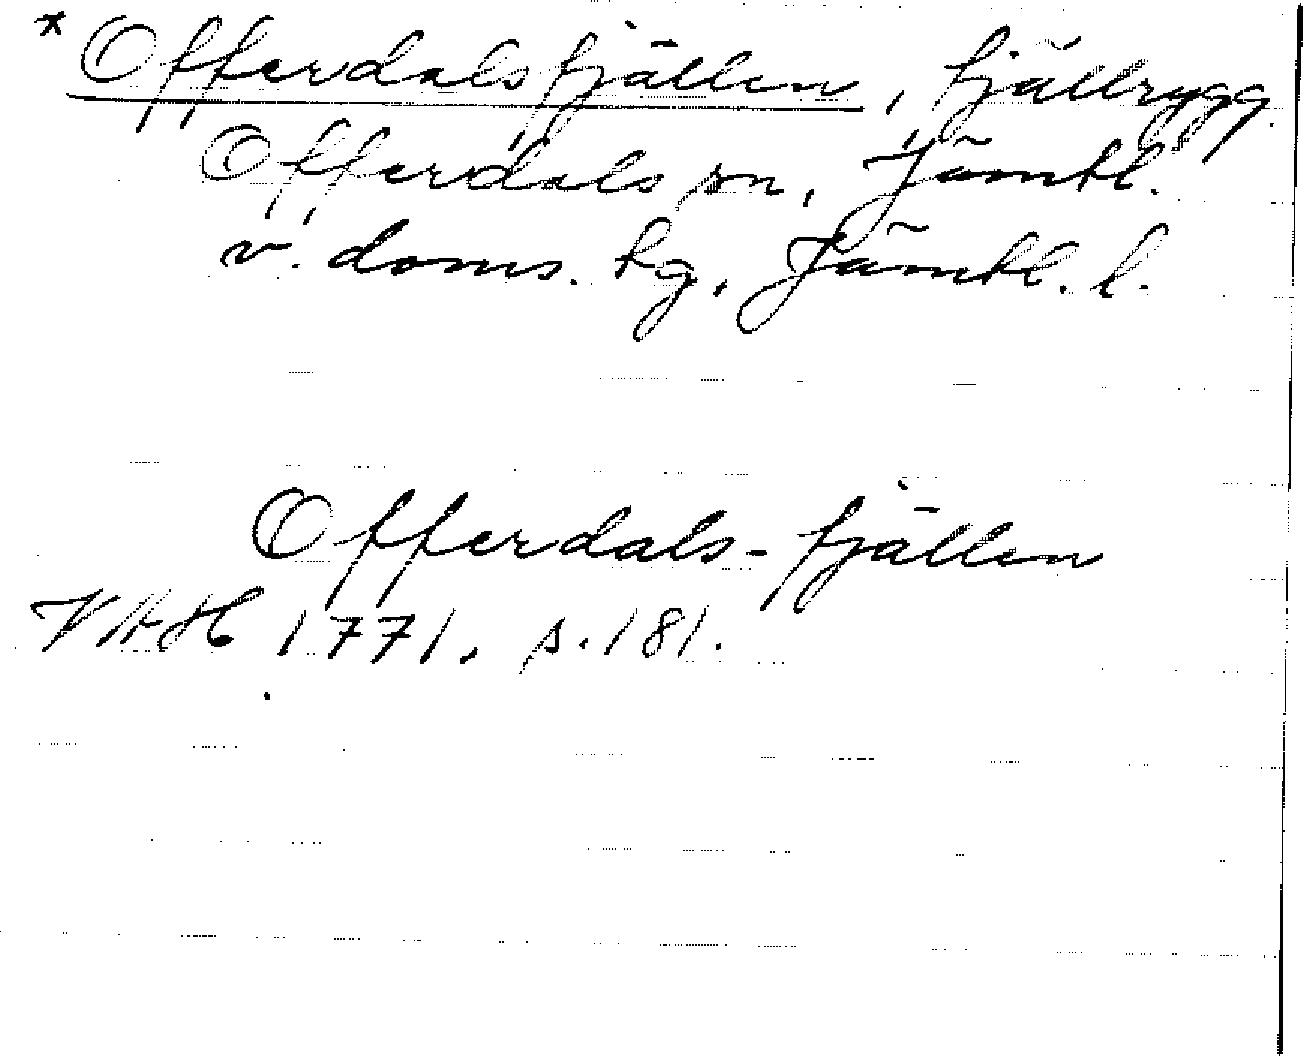 * Offerdalsfjällen, fjällrygg.
Offerdals sn, Jämtl.
v. doms. hg, Jämtl. l.
Offerdals-fjällen
VAH 1771. s. 181.